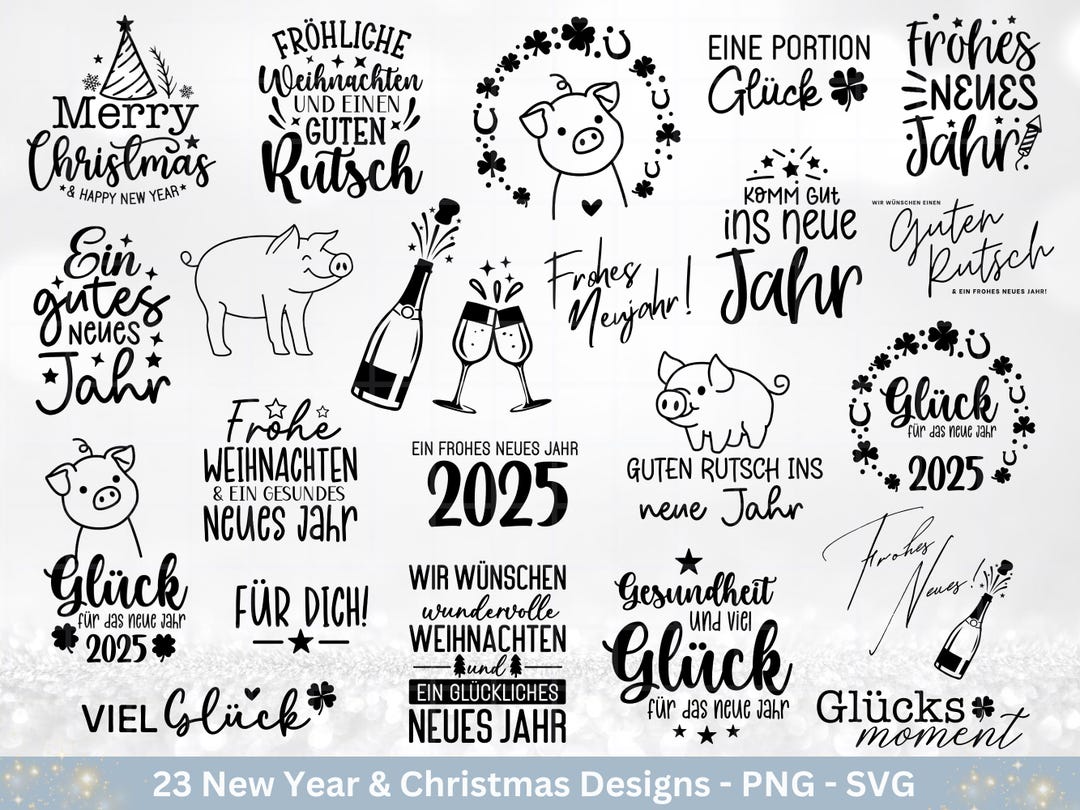 Merry
Christmas
& HAPPY NEW YEAR
FRÖHLICHE
Weihnachten
UND EINEN
GUTEN
Rutsch
EINE PORTION
Glück
Frohes
NEUES
Jahr
KOMM GUT
INS NEUE
Jahr
WIR WÜNSCHEN EINEN
Guten
Rutsch
& EIN FROHES NEUES JAHR!
Ein
gutes
NEUES
Jahr
Frohes
Neujahr!
Glück
für das neue Jahr
2025
Frohe
WEIHNACHTEN
& EIN GESUNDES
NEUES JAHR
EIN FROHES NEUES JAHR
2025
GUTEN RUTSCH INS
neue Jahr
Glück
für das neue Jahr
2025
FÜR DICH!
WIR WÜNSCHEN
wundervolle
WEIHNACHTEN
und
EIN GLÜCKLICHES
NEUES JAHR
Gesundheit
und viel
Glück
für das neue Jahr
Frohes
Neues!
VIEL Glück
Glücks
moment
23 New Year & Christmas Designs - PNG - SVG